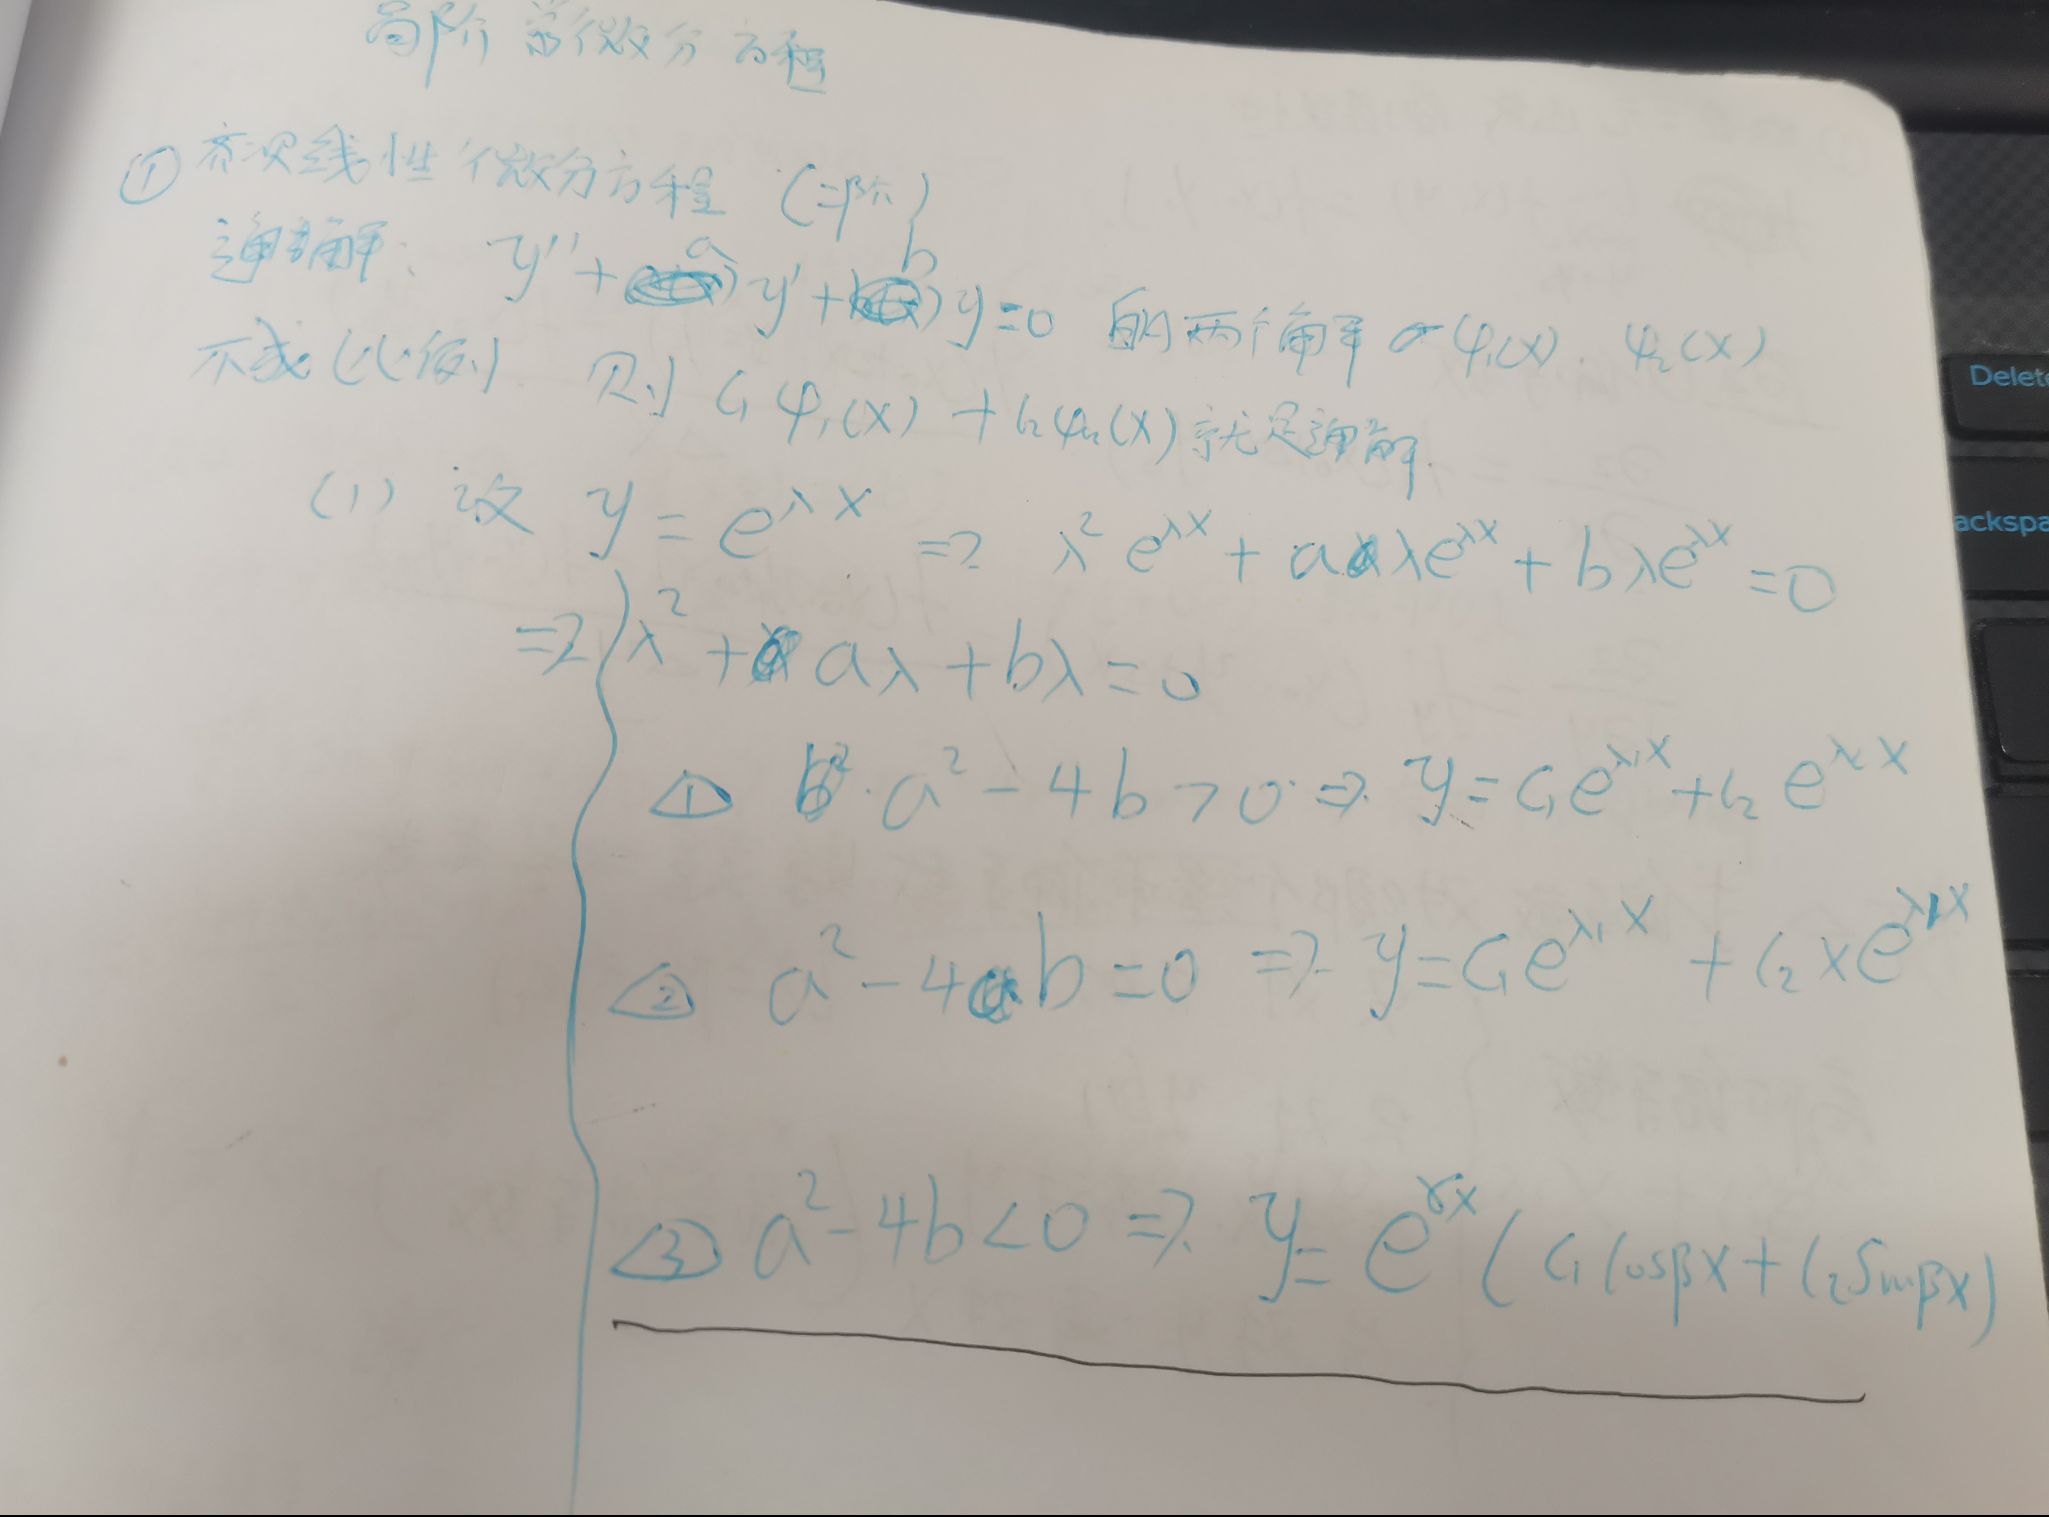 高阶常微分方程
① 齐次线性微分方程 (二阶)
通解: y''+ay'+by=0 的两个解 φ₁(x). φ₂(x)
不成(比例) 则 C₁φ₁(x)+C₂φ₂(x)就是通解.
(1) 设 y=e^{λx} => λ²e^{λx}+aλe^{λx}+bλe^{λx}=0
=> λ²+aλ+bλ=0
① a²-4b>0 => y=C₁e^{λ₁x}+C₂e^{λ₂x}
② a²-4b=0 => y=C₁e^{λ₁x}+C₂xe^{λ₁x}
③ a²-4b<0 => y=e^{αx}(C₁cosβx+C₂sinβx)
Delete
ackspa